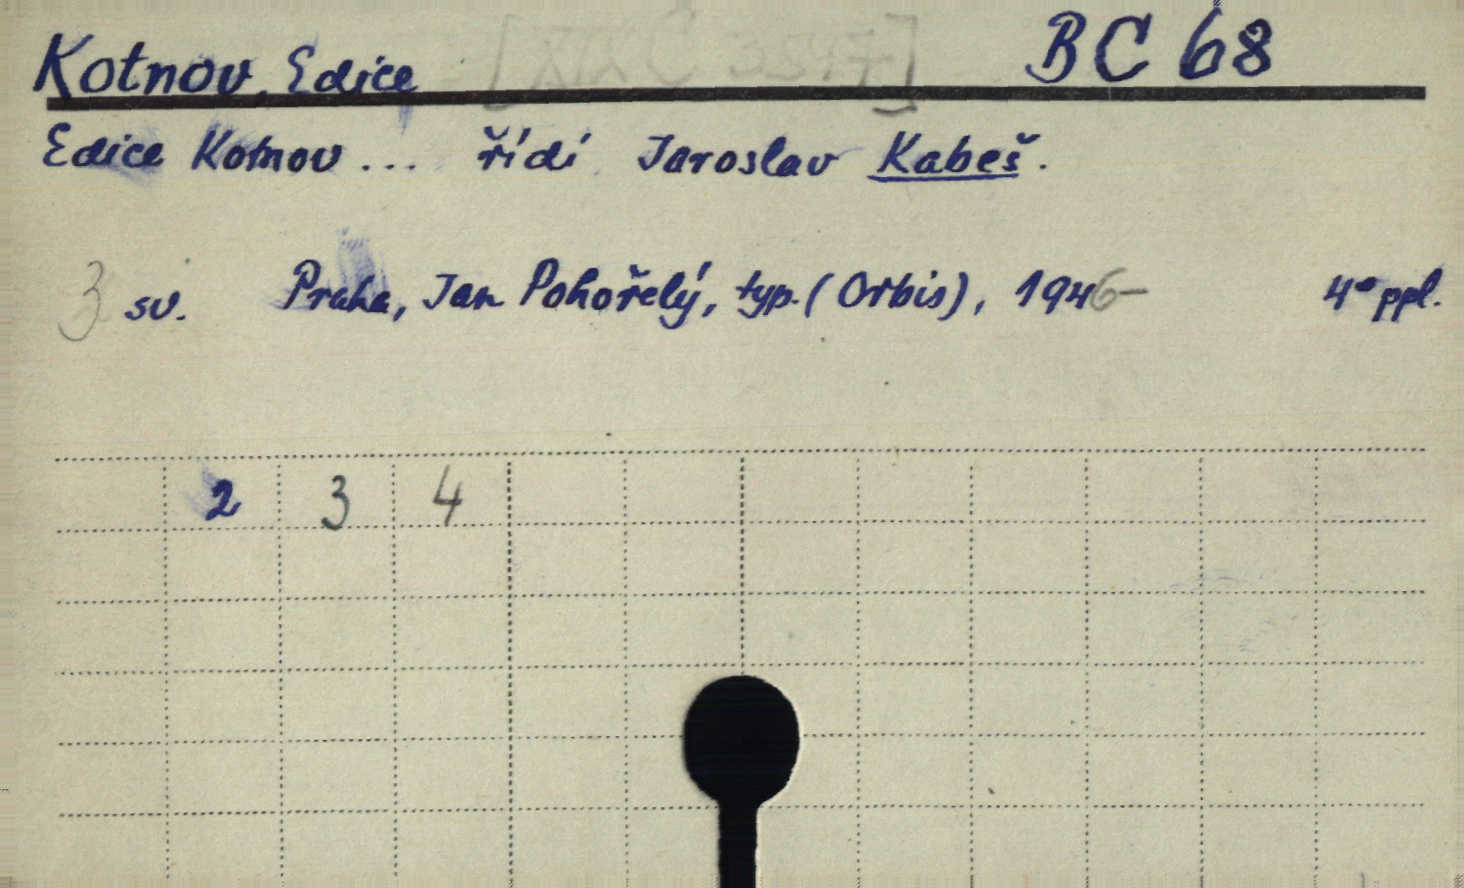 Kotnov. Edice BC 68
Edice Kotnov ... řídí Jaroslav Kabeš.
3 sv. Praha, Jan Pohořelý, typ. (Orbis), 1946- 4° ppl.
2 3 4